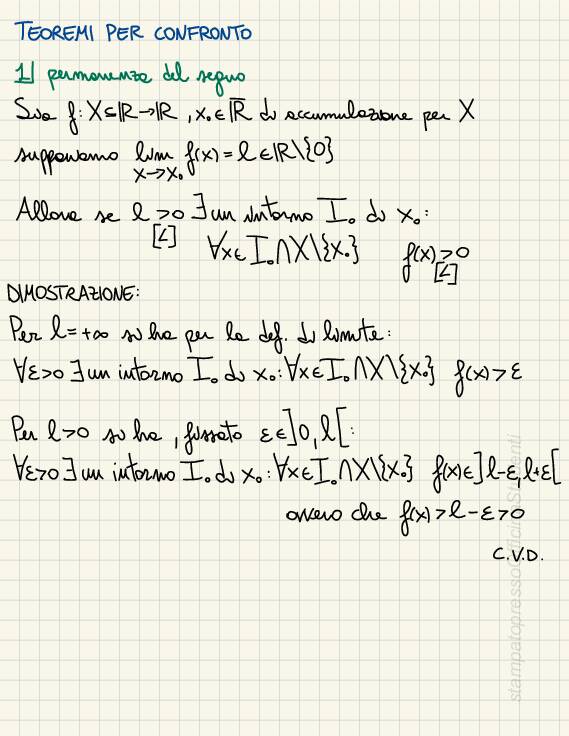 TEOREMI PER CONFRONTO
1] permanenza del segno
Sia f: X⊆ℝ→ℝ, x₀∈ℝ̅ di accumulazione per X
supponiamo lim f(x) = l ∈ ℝ\{0}
x→x₀
Allora se l > 0 ∃ un intorno I₀ di x₀:
[<]
∀x∈I₀∩X\{x₀} f(x) > 0
[<]
DIMOSTRAZIONE:
Per l=+∞ si ha per la def. di limite:
∀ε>0 ∃ un intorno I₀ di x₀: ∀x∈I₀∩X\{x₀} f(x) > ε
Per l>0 si ha, fissato ε∈]0,l[:
∀ε>0 ∃ un intorno I₀ di x₀: ∀x∈I₀∩X\{x₀} f(x)∈]l-ε,l+ε[
ovvero che f(x)>l-ε>0
C.V.D.
stampatopressoOfficinaStudenti